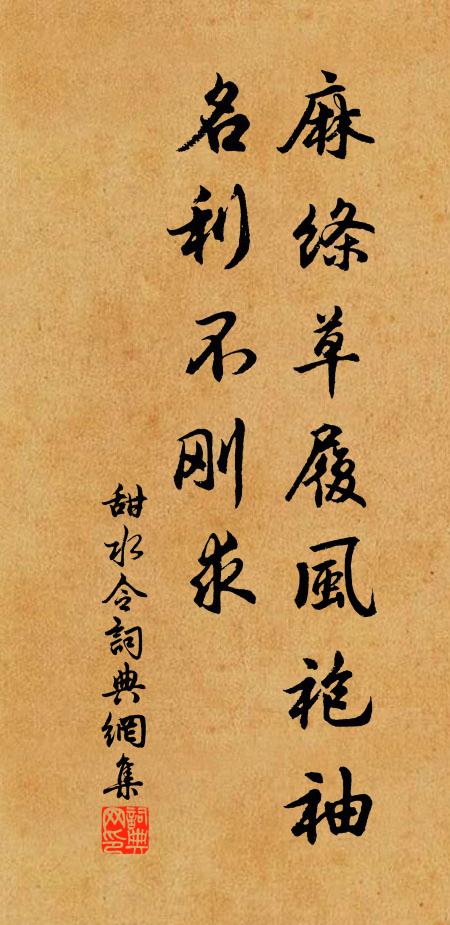 麻絛草履風袍袖
名利不刚求
甜水令詞典網集
詞典网印